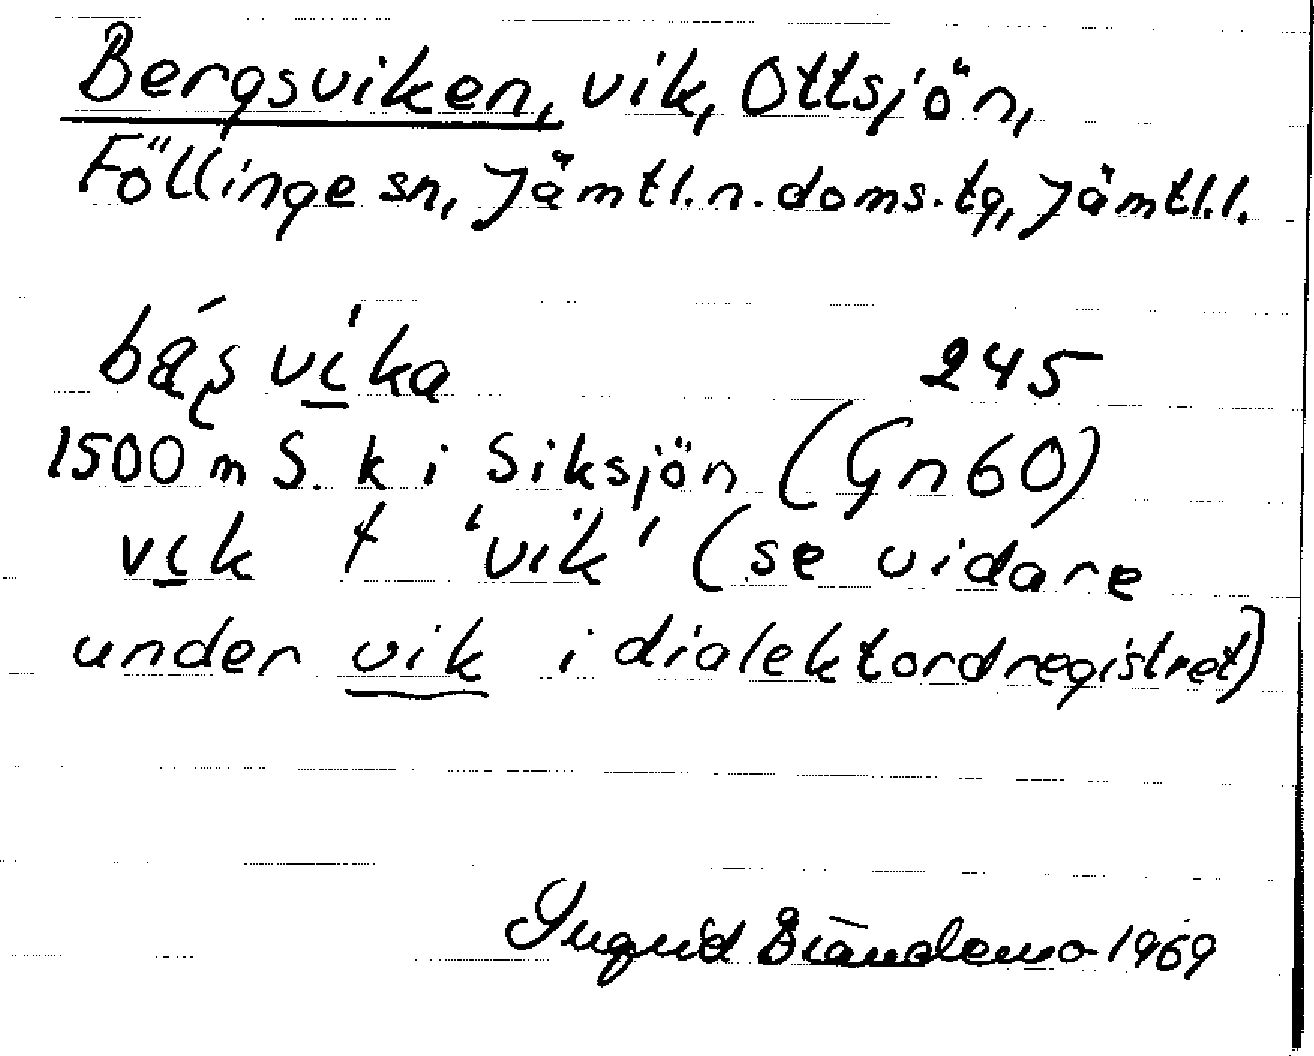 Bergsviken, vik, Ottsjön,
Föllinge sn, Jämtl.n.doms.tg, Jämtl.l.
245
1500 m S. k i Siksjön (Gn60)
vik f 'vik' (se vidare
under vik i dialektordregistret)
Ingrid 1969